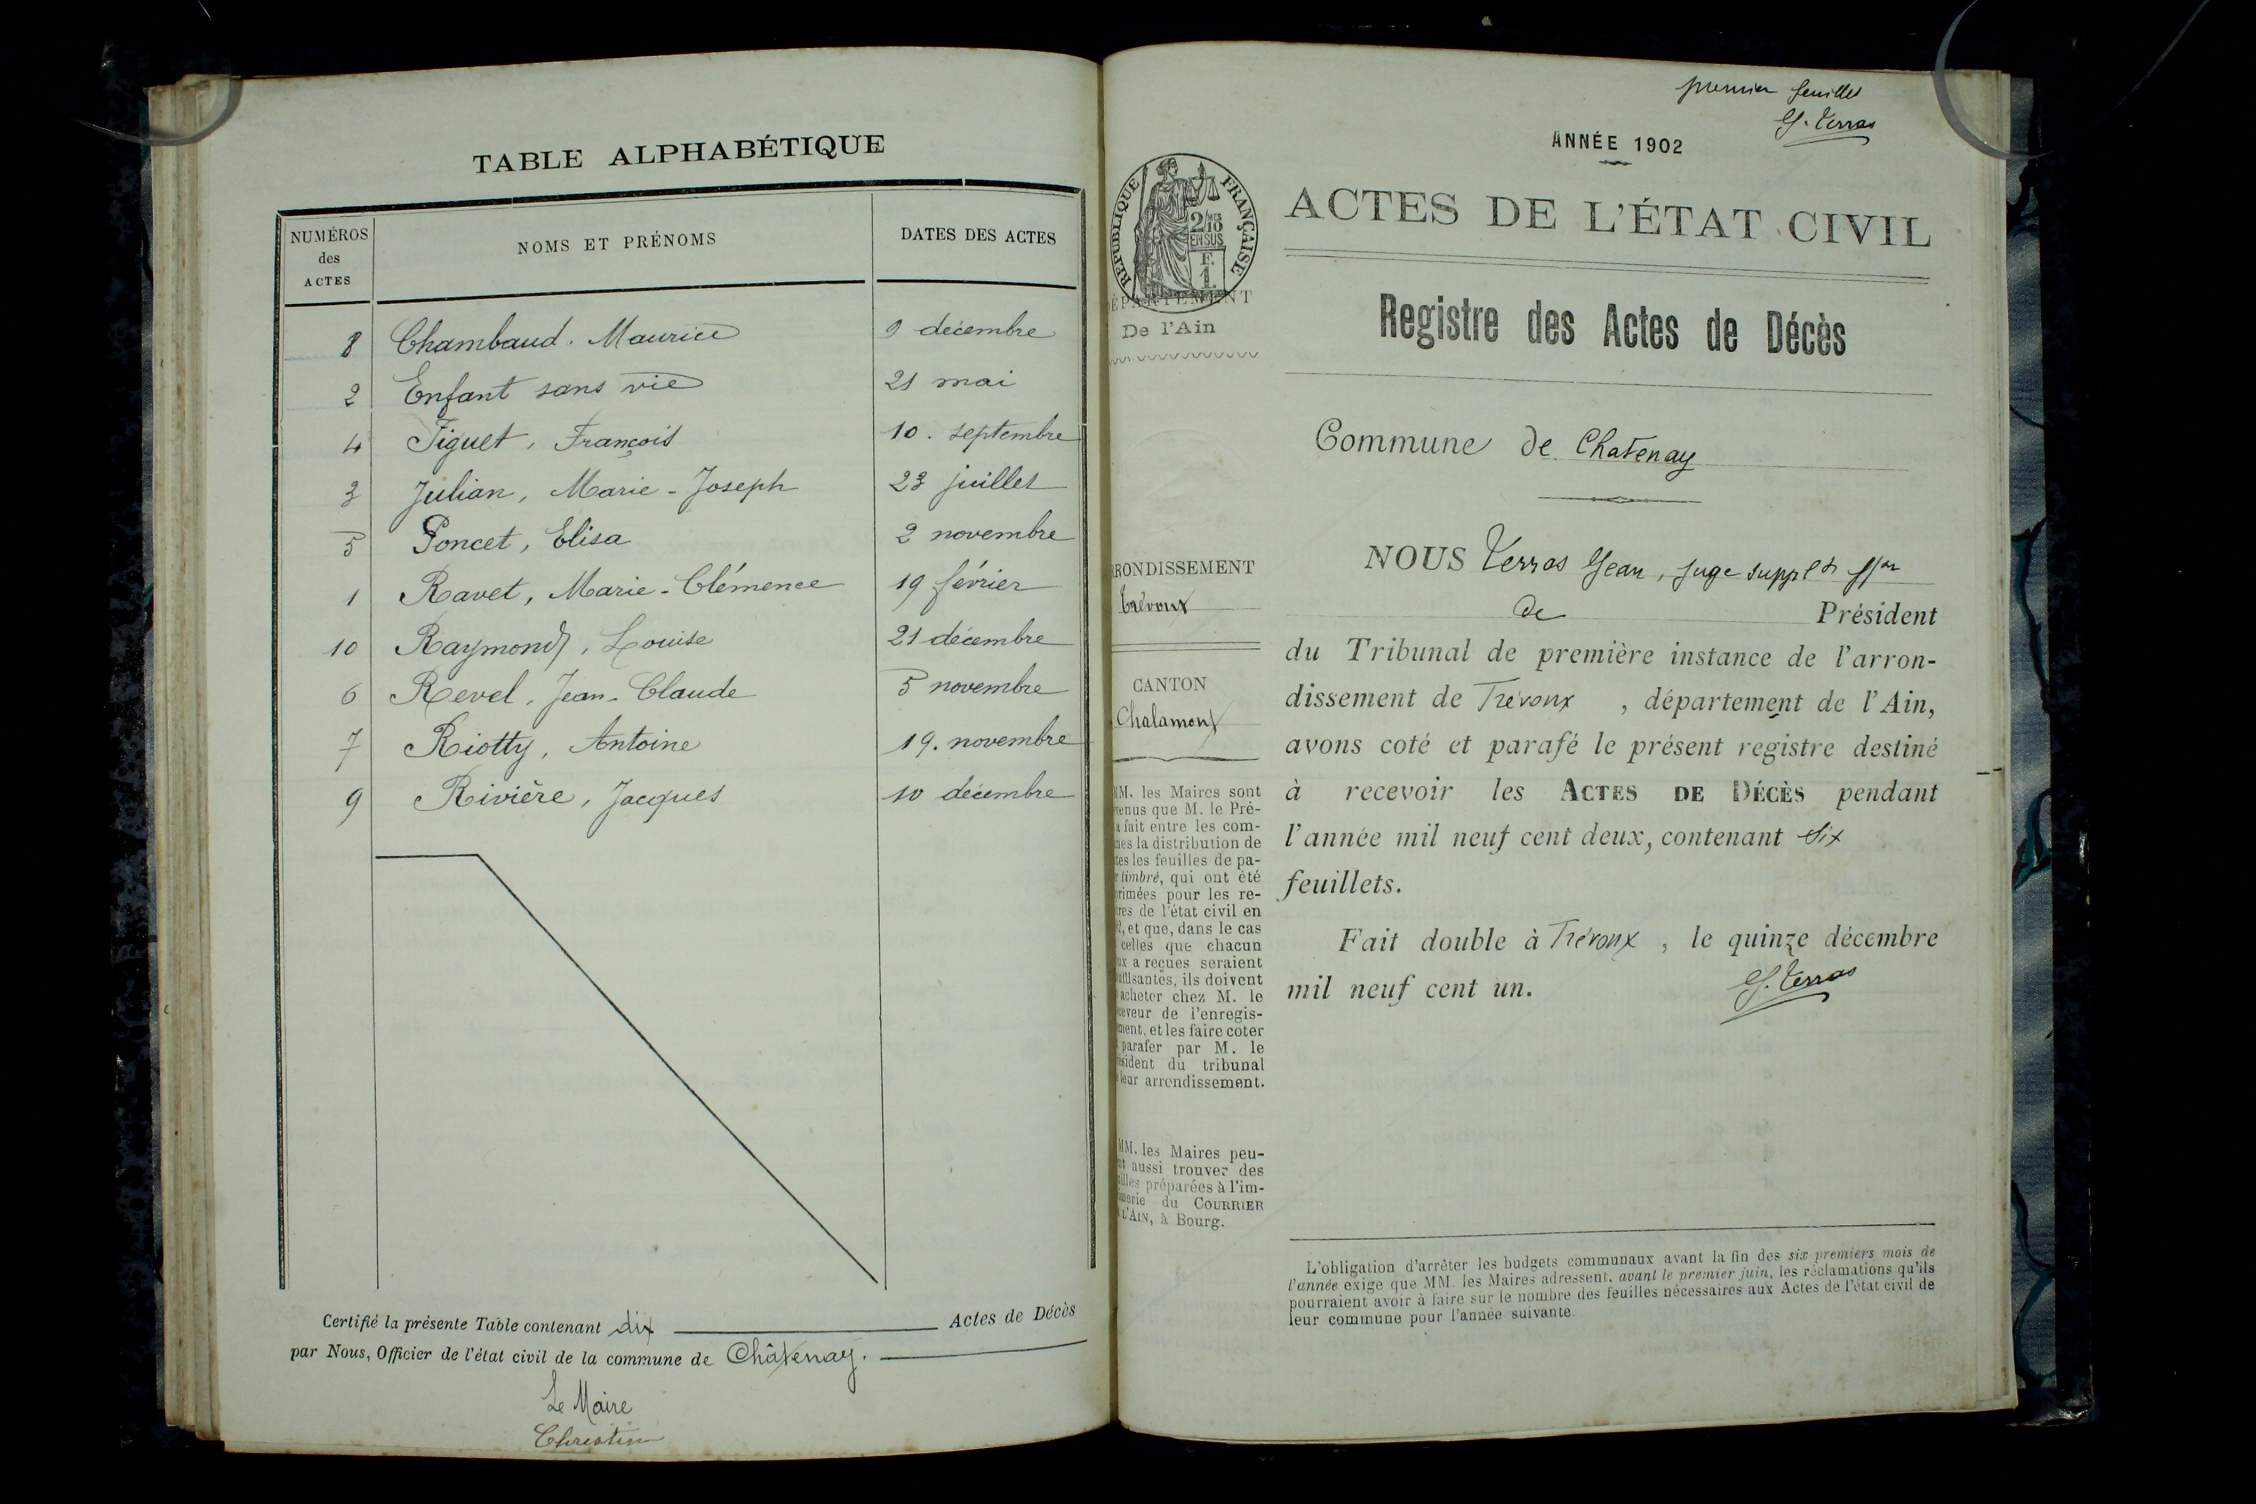 TABLE ALPHABÉTIQUE
NUMÉROS des ACTES | NOMS ET PRÉNOMS | DATES DES ACTES
8 Chambaud. Maurice 9 décembre
2 Enfant sans vie 21 mai
4 Figuet, François 10. septembre
3 Julian, Marie-Joseph 23 juillet
5 Poncet, Elisa 2 novembre
1 Ravet, Marie-Clémence 19 février
10 Raymond, Louise 21 décembre
6 Revel, Jean-Claude 5 novembre
7 Riotty, Antoine 19. novembre
9 Rivière, Jacques 10 décembre
Certifié la présente Table contenant dix Actes de Décès
par Nous, Officier de l'état civil de la commune de Châtenay.
Le Maire
Christin
premier feuillet
J. Terras
ANNÉE 1902
ACTES DE L'ÉTAT CIVIL
RÉPUBLIQUE FRANÇAISE
2/10
EN SUS
F.
1.
ÉPARTEMENT
De l'Ain
Registre des Actes de Décès
Commune de Chatenay
RRONDISSEMENT
Trévoux
CANTON
Chalamont
NOUS Terras Jean, juge supplt ffon
de Président
du Tribunal de première instance de l'arron-
dissement de Trévoux, département de l'Ain,
avons coté et parafé le présent registre destiné
à recevoir les ACTES DE DÉCÈS pendant
l'année mil neuf cent deux, contenant six
feuillets.
Fait double à Trévoux, le quinze décembre
mil neuf cent un.
J. Terras
MM. les Maires sont
venus que M. le Pré-
a fait entre les com-
nes la distribution de
tes les feuilles de pa-
r timbré, qui ont été
primées pour les re-
tres de l'état civil en
2, et que, dans le cas
celles que chacun
ux a reçues seraient
uffisantes, ils doivent
acheter chez M. le
ceveur de l'enregis-
ment, et les faire coter
parafer par M. le
ésident du tribunal
leur arrondissement.
MM. les Maires peu-
nt aussi trouver des
uilles préparées à l'im-
merie du COURRIER
L'AIN, à Bourg.
L'obligation d'arrêter les budgets communaux avant la fin des six premiers mois de
l'année exige que MM. les Maires adressent, avant le premier juin, les réclamations qu'ils
pourraient avoir à faire sur le nombre des feuilles nécessaires aux Actes de l'état civil de
leur commune pour l'année suivante.